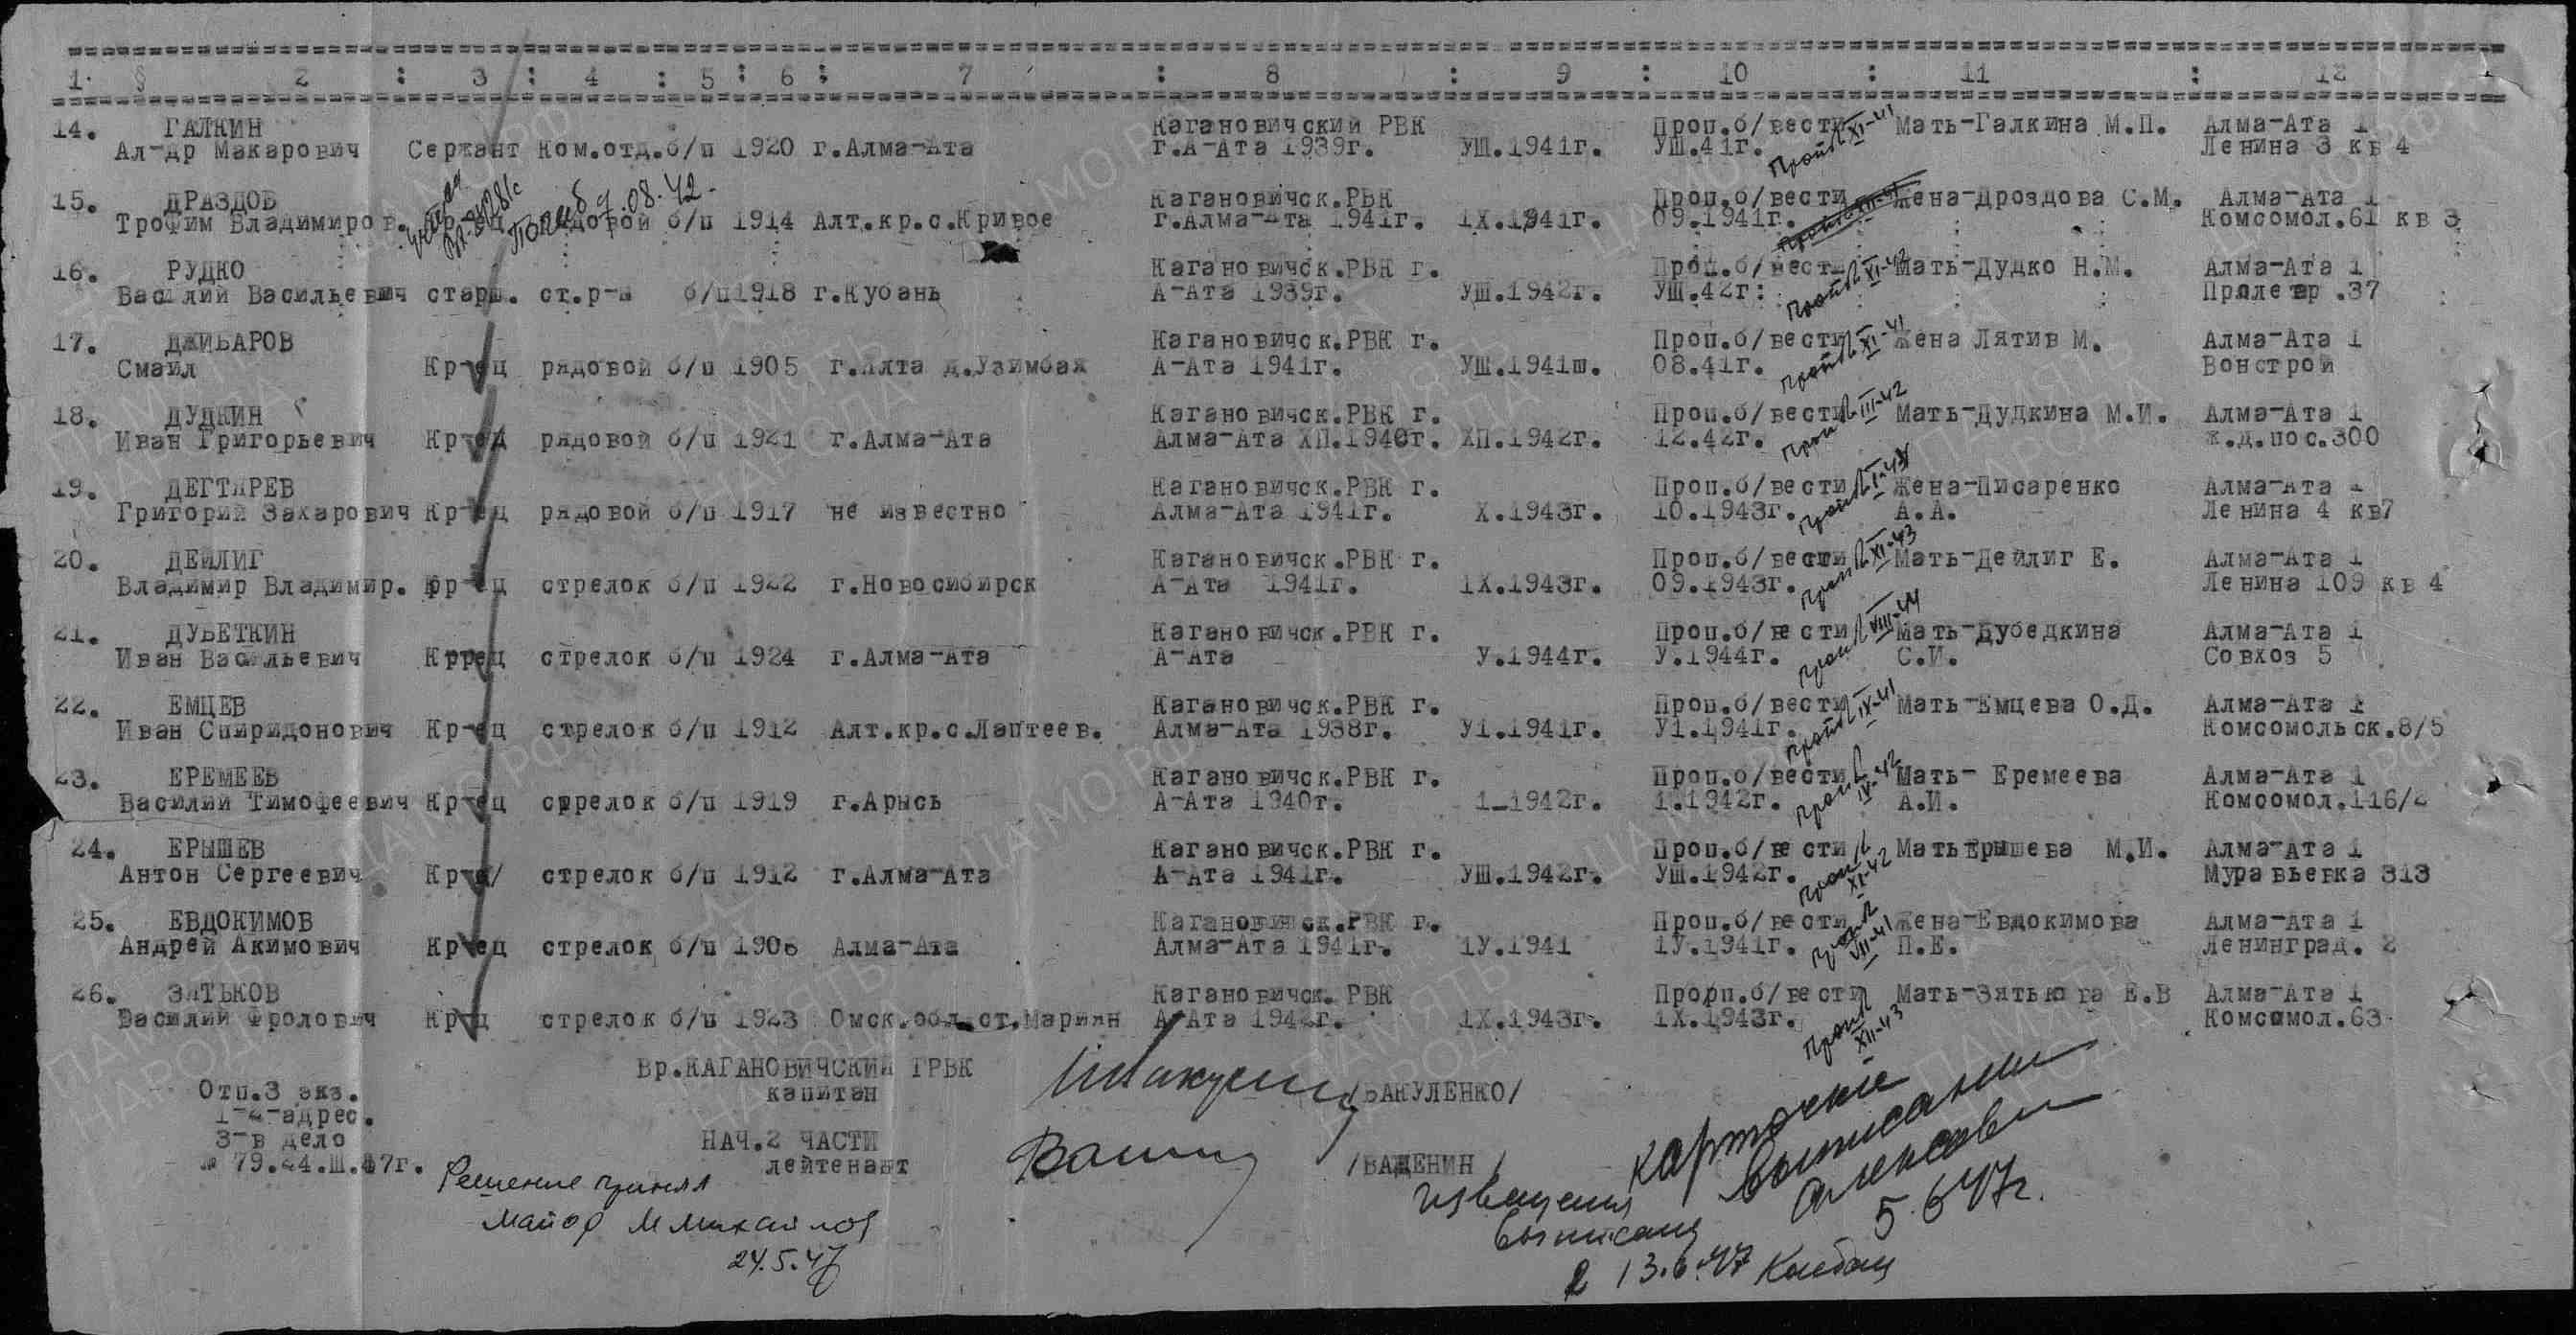 1. § 2 : 3 : 4 : 5 : 6 : 7 : 8 : 9 : 10 : 11 : 12
14. ГАЛКИН Кагановичский РВК Проп.б/вести Мать-Галкина М.П. Алма-Ата 1
Ал-др Макарович Сержант Ком.отд.б/п 1920 г.Алма-Ата г.А-Ата 1939г. УШ.1941г. УШ.41г. Ленина 3 кв 4
Проп XI-41
15. ДРАЗДОВ Кагановичск.РВК Проп.б/вести Жена-Дроздова С.М. Алма-Ата 1
Трофим Владимиров. Кр-ец рядовой б/п 1914 Алт.кр.с.Кривое г.Алма-Ата 1941г. 1Х.1941г. 09.1941г. Комсомол.61 кв 3
Погиб 9.08.42.
16. РУДКО Кагановичск.РВК г. Проп.б/вести Мать-Дудко Н.М. Алма-Ата 1
Василий Васильевич старш. ст.р-н б/п 1918 г.Кубань А-Ата 1939г. УШ.1942г. УШ.42г: Пролетар.37
Проп XI-42
17. ДЖИБАРОВ Кагановичск.РВК г. Проп.б/вести Жена Лятив М. Алма-Ата 1
Смаил Кр-ец рядовой б/п 1905 г.Ялта д.Узимбаж А-Ата 1941г. УШ.1941ш. 08.41г. Вонстрой
Проп XI-41
18. ДУДКИН Кагановичск.РВК г. Проп.б/вести Мать-Дудкина М.И. Алма-Ата 1
Иван Григорьевич Кр-ец рядовой б/п 1921 г.Алма-Ата Алма-Ата ХП.1940г. ХП.1942г. 12.42г. ж.д.пос.300
Проп III-42
19. ДЕГТЯРЕВ Кагановичск.РВК г. Проп.б/вести Жена-Писаренко Алма-Ата 1
Григорий Захарович Кр-ец рядовой б/п 1917 не известно Алма-Ата 1941г. Х.1943г. 10.1943г. А.А. Ленина 4 кв7
20. ДЕЙЛИГ Кагановичск.РВК г. Проп.б/вести Мать-Дейлиг Е. Алма-Ата 1
Владимир Владимир. Кр-ец стрелок б/п 1922 г.Новосибирск А-Ата 1941г. 1Х.1943г. 09.1943г. Ленина 109 кв 4
Проп XI-43
21. ДУБЕТКИН Кагановичск.РВК г. Проп.б/вести Мать-Дубедкина Алма-Ата 1
Иван Васильевич Кррец стрелок б/п 1924 г.Алма-Ата А-Ата У.1944г. У.1944г. С.И. Совхоз 5
Проп VIII-44
22. ЕМЦЕВ Кагановичск.РВК г. Проп.б/вести Мать-Емцева О.Д. Алма-Ата 1
Иван Спиридонович Кр-ец стрелок б/п 1912 Алт.кр.с.Лаптеев. Алма-Ата 1938г. У1.1941г. У1.1941г. Комсомольск.8/5
Проп IX-41
23. ЕРЕМЕЕВ Кагановичск.РВК г. Проп.б/вести Мать- Еремеева Алма-Ата 1
Василий Тимофеевич Кр-ец стрелок б/п 1919 г.Арысь А-Ата 1940г. 1-1942г. 1.1942г. А.И. Комсомол.116/2
Проп IV-42
24. ЕРЫШЕВ Кагановичск.РВК г. Проп.б/вести МатьЕрышева М.И. Алма-Ата 1
Антон Сергеевич Кр-ц/ стрелок б/п 1912 г.Алма-Ата А-Ата 1941г. УШ.1942г. УШ.1942г. Муравьевка 313
Проп XI-42
25. ЕВДОКИМОВ Кагановичск.РВК г. Проп.б/вести Жена-Евдокимова Алма-Ата 1
Андрей Акимович Кр-ец стрелок б/п 1906 Алма-Ата Алма-Ата 1941г. 1У.1941 1У.1941г. П.Е. Ленинград. 2
Проп VII-41
26. ЗЯТЬКОВ Кагановичск. РВК Прорп.б/вести Мать-Зятькова Е.В Алма-Ата 1
Василий Фролович Кр-ц стрелок б/п 1923 Омск.обл.ст.Мариян А-Ата 1942г. 1Х.1943г. 1Х.1943г. Комсомол.63
Проп XII-43
Вр.КАГАНОВИЧСКИЙ ГРВК
капитан /БАКУЛЕНКО/
Отп.3 экз.
1-2-адрес.
3-в дело
№ 79.24.Ш.47г.
НАЧ.2 ЧАСТИ
лейтенант /ВАЩЕНИН/
Решение принял
майор М Михайлов
24.5.47
карточки
выписаны
5.6.47г.
извещения
выписаны
13.6.47
ПАМЯТЬ НАРОДА
ЦАМО РФ